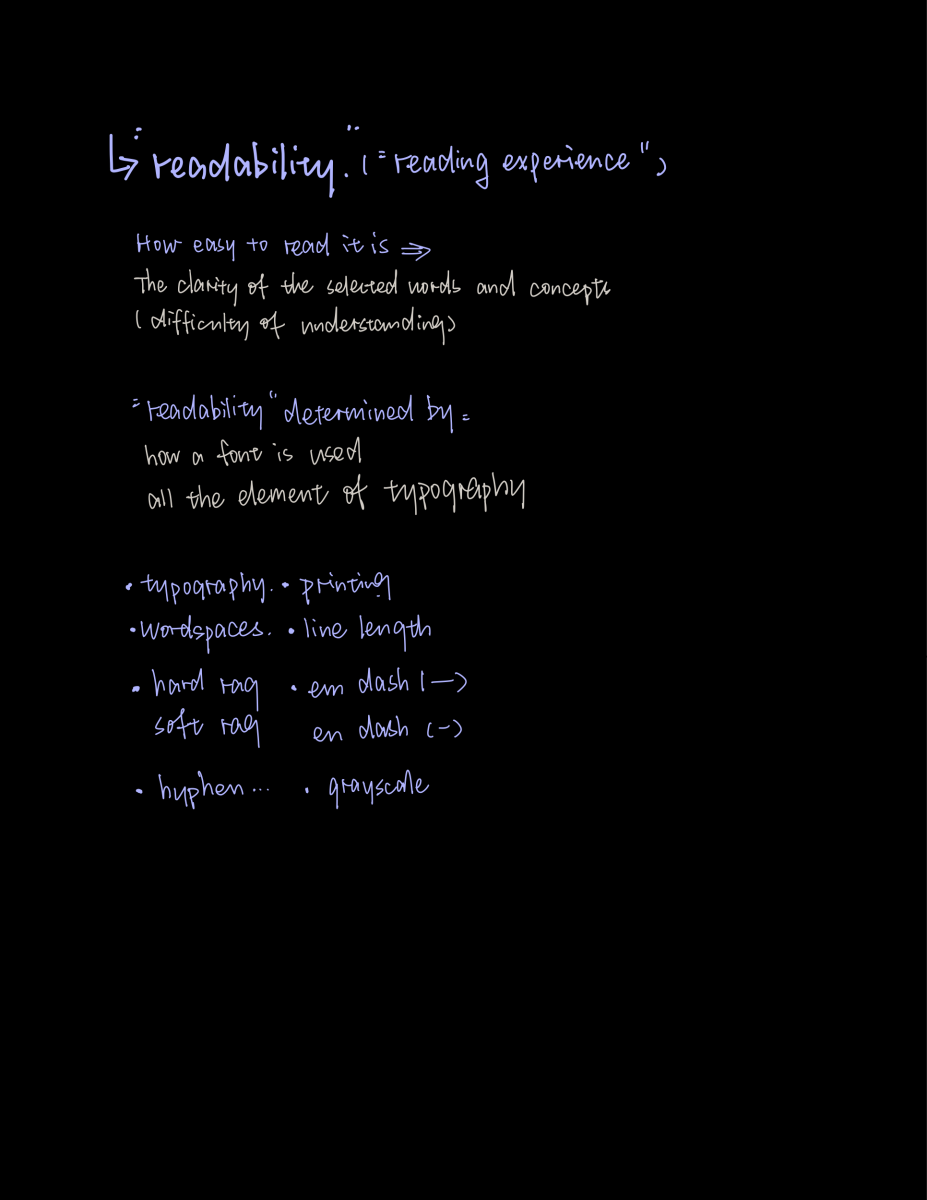 ↳ "readability." ("reading experience")
How easy to read it is ⇒
The clarity of the selected words and concepts
(difficulty of understanding)
"readability" determined by:
how a font is used
all the element of typography
• typography. • printing
• wordspaces. • line length
• hard rag • em dash (—)
soft rag en dash (-)
• hyphen... • grayscale